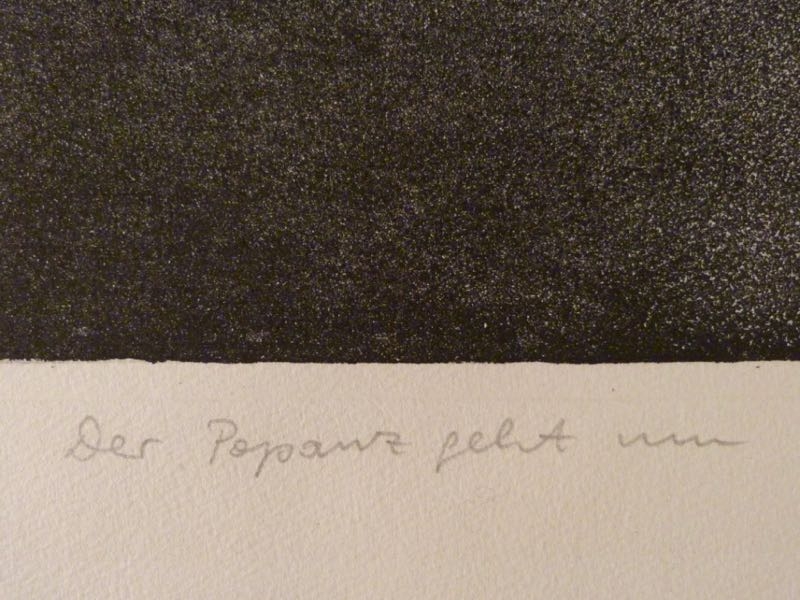 Der Popanz geht um